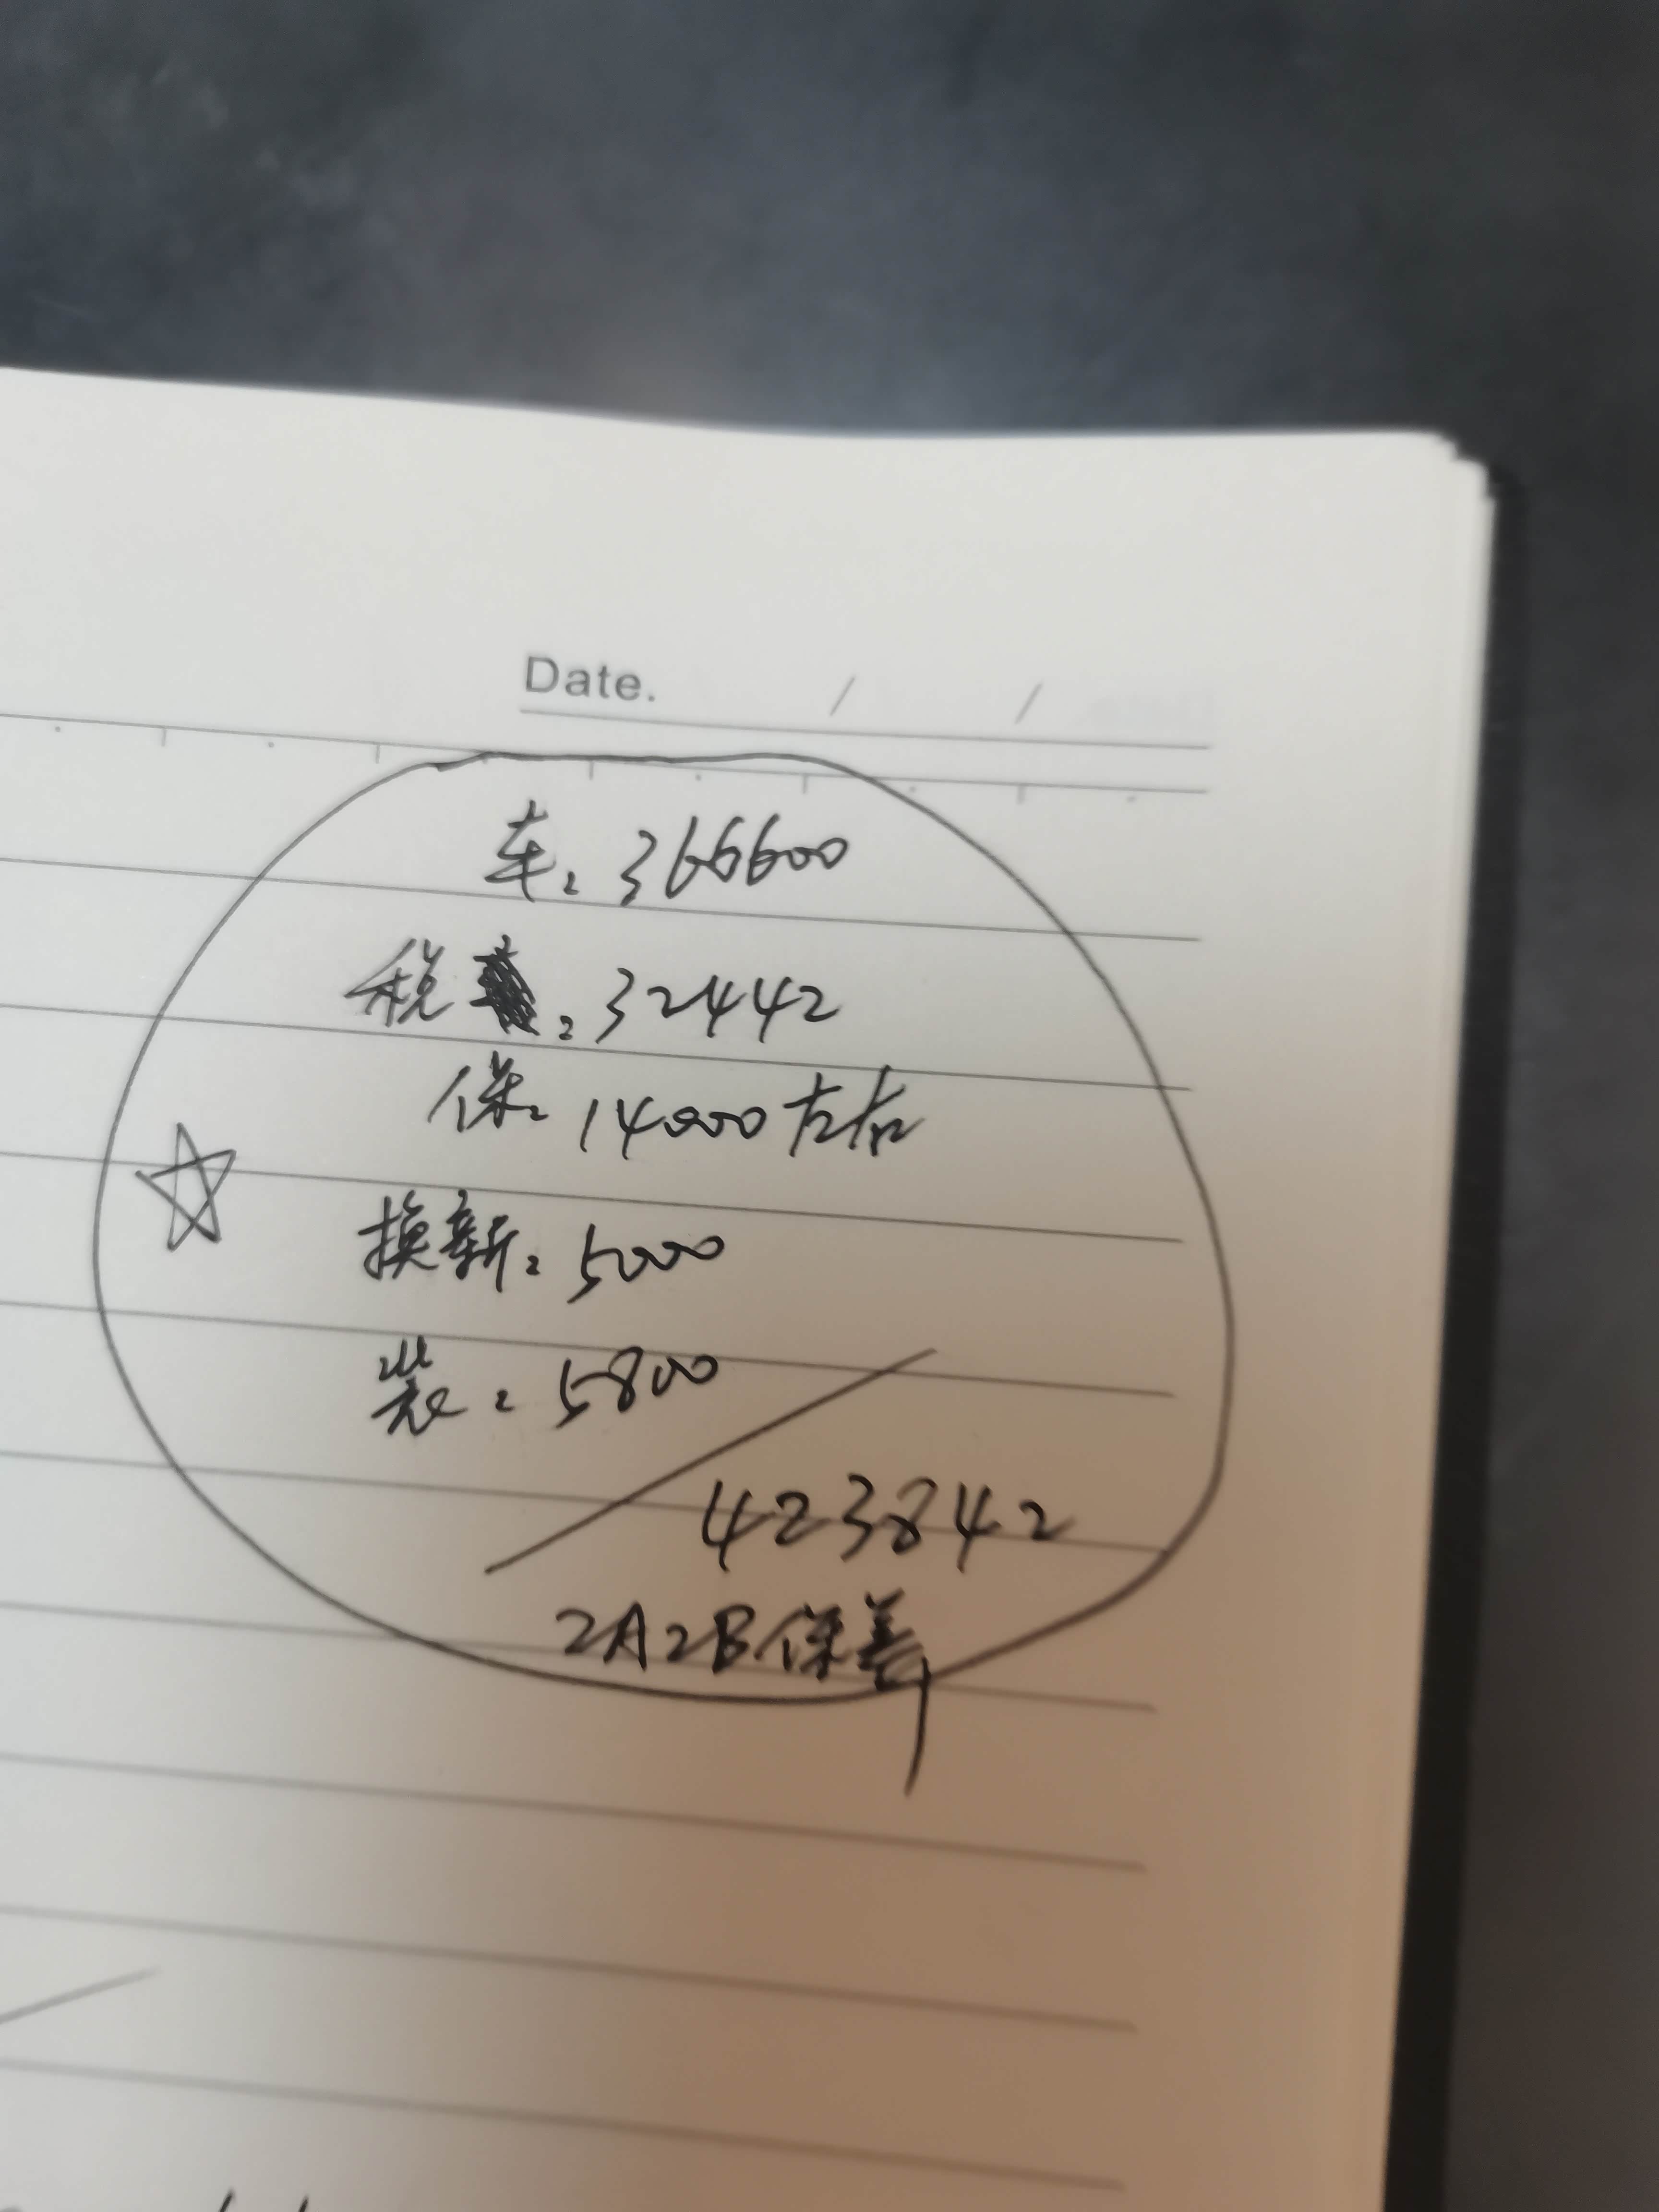 Date. / /
车: 366600
税: 32442
保: 14000左右
换新: 5000
装: 5800
423842
2A2B保养